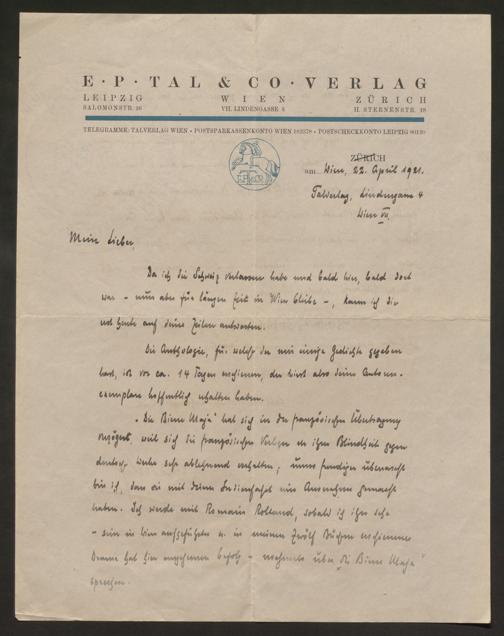 E · P · TAL & CO · VERLAG
LEIPZIG WIEN ZÜRICH
SALOMONSTR. 16 VII. LINDENGASSE 4 H. STERNENSTR. 18
TELEGRAMME: TALVERLAG WIEN • POSTSPARKASSENKONTO WIEN • POSTSCHECKKONTO LEIPZIG
ZÜRICH
am Wien, 22. April 1921.
Talverlag, Lindengasse 4
Wien VII.
Mein Lieber,
Da ich die Schweiz verlassen habe und bald hier, bald dort
war – nun aber für längere Zeit in Wien bleibe –, kann ich dir
erst heute auf deine Zeilen antworten.
Die Anthologie, für welche du mir einige Gedichte gegeben
hast, ist vor ca. 14 Tagen erschienen, du wirst also deine Autoren-
exemplare hoffentlich erhalten haben.
„Die Biene Maja" hat sich in der französischen Übertragung
verzögert, weil sich die französischen Verleger in ihrer Blindheit gegen
deutsche Werke sehr ablehnend verhalten; umso freudiger überrascht
bin ich, dass sie mit deiner Indienfahrt eine Ausnahme gemacht
haben. Ich werde mit Romain Rolland, sobald ich ihn sehe
– sein in Wien aufgeführtes u. in meinem Verlag erschienenes
Drama hat hier Erfolg – über „Die Biene Maja"
sprechen.